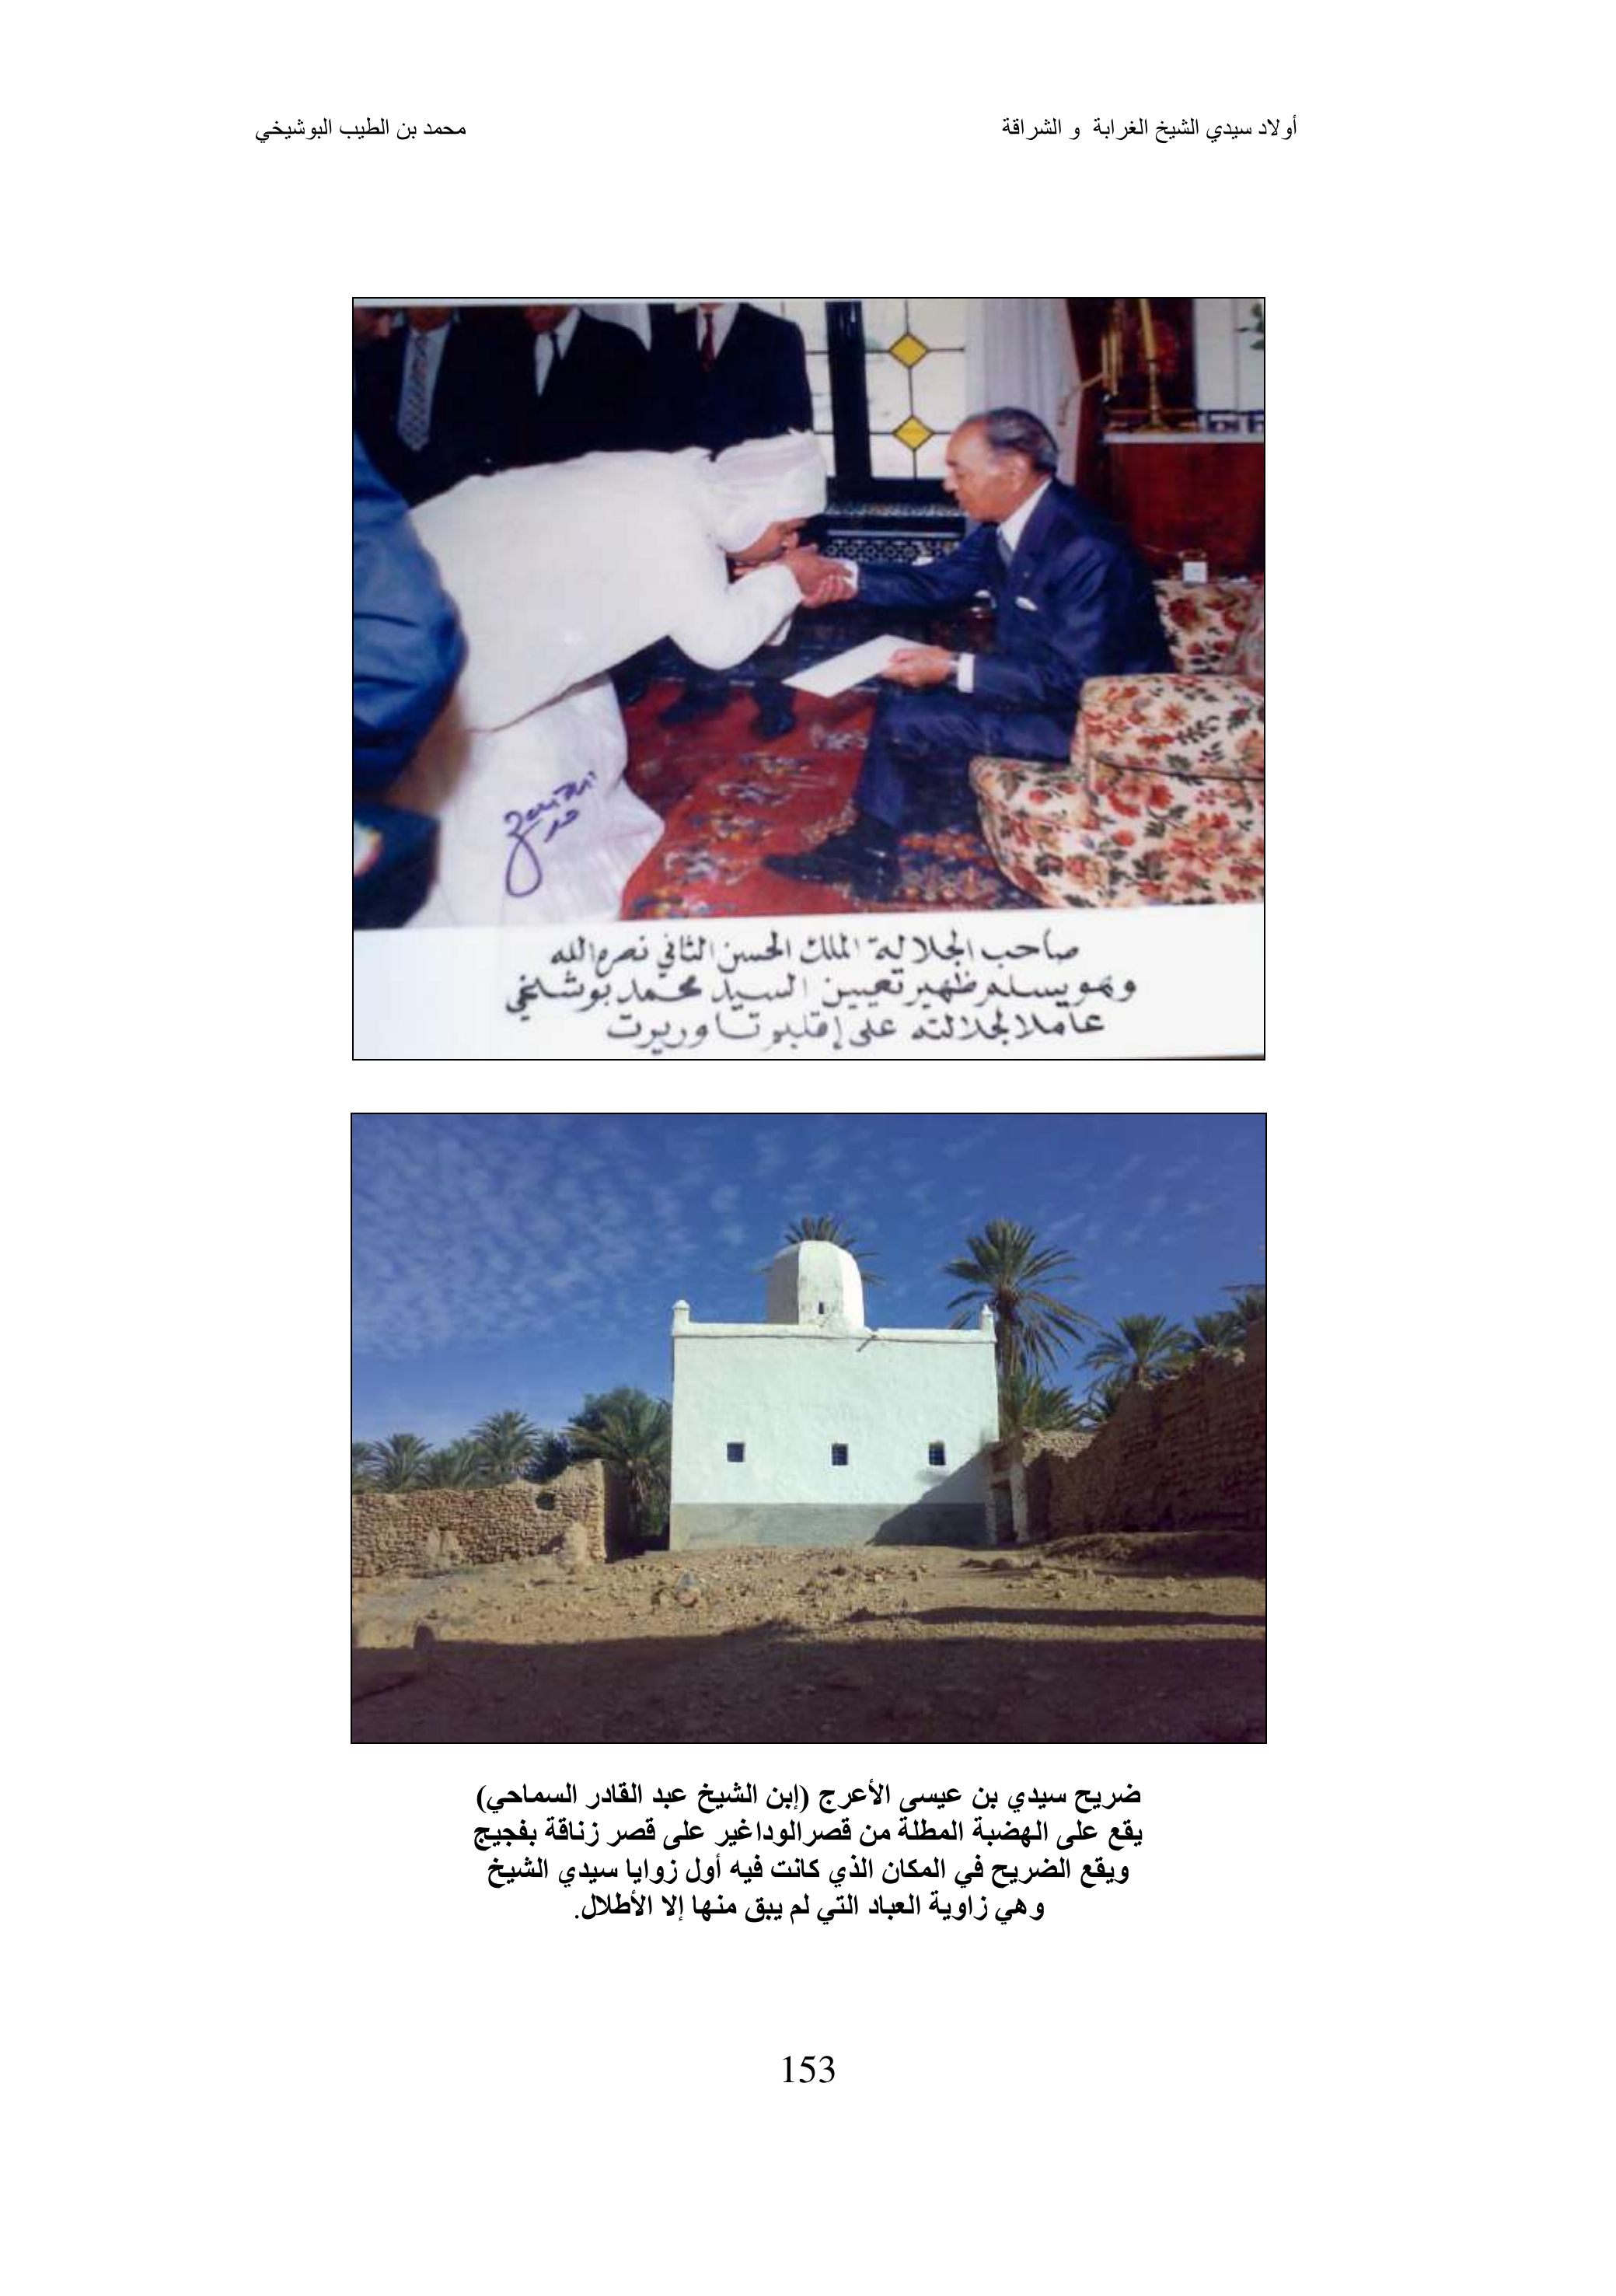 أولاد سيدي الشيخ الغرابة و الشراقة
محمد بن الطيب البوشيخي
صاحب الجلالة الملك الحسن الثاني نصره الله
وهو يسلم ظهير تعيين السيد محمد بوشيخي
عاملا لجلالته على إقليم تاوريرت
ضريح سيدي بن عيسى الأعرج (إبن الشيخ عبد القادر السماحي)
يقع على الهضبة المطلة من قصرالوداغير على قصر زناقة بفجيج
ويقع الضريح في المكان الذي كانت فيه أول زوايا سيدي الشيخ
وهي زاوية العباد التي لم يبق منها إلا الأطلال.
153